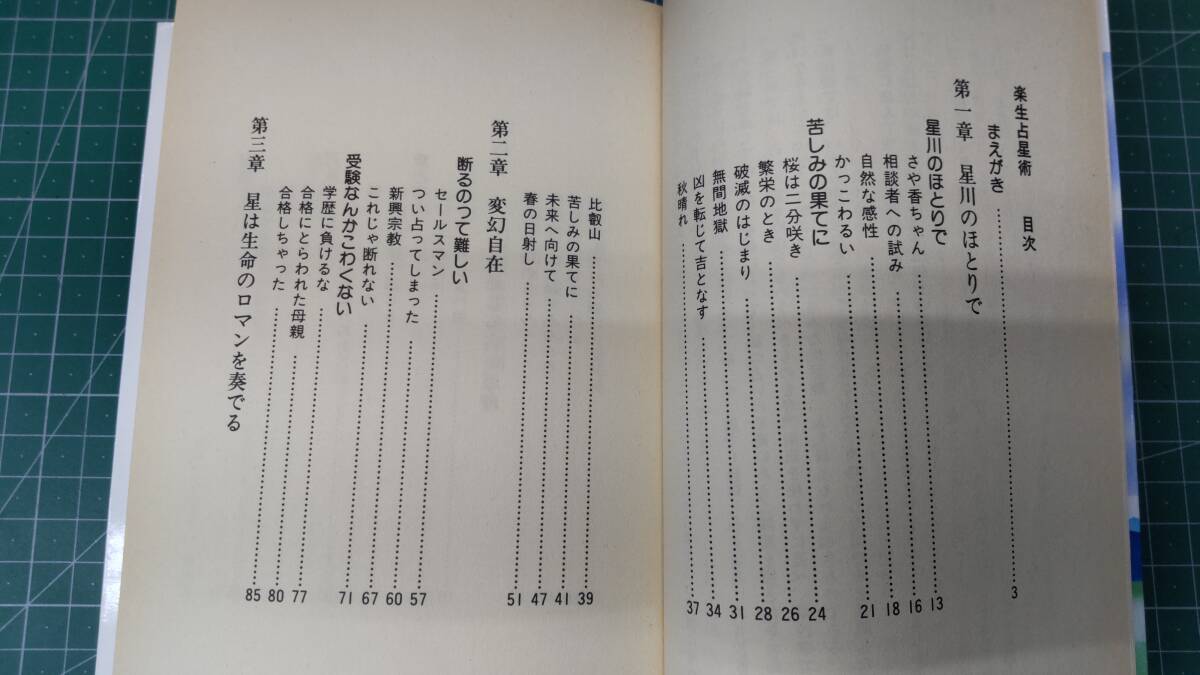 楽生占星術　目次
まえがき……3
第一章　星川のほとりで
星川のほとりで
さや香ちゃん……13
相談者への試み……16
自然な感性……18
かっこわるい……21
苦しみの果てに
桜は二分咲き……24
繁栄のとき……26
破滅のはじまり……28
無間地獄……31
凶を転じて吉となす……34
秋晴れ……37
比叡山……39
苦しみの果てに……41
未来へ向けて……47
春の日射し……51
第二章　変幻自在
断るのって難しい
セールスマン……57
つい占ってしまった……60
新興宗教……67
これじゃ断れない……71
受験なんかこわくない
学歴に負けるな……77
合格にとらわれた母親……80
合格しちゃった……85
第三章　星は生命のロマンを奏でる